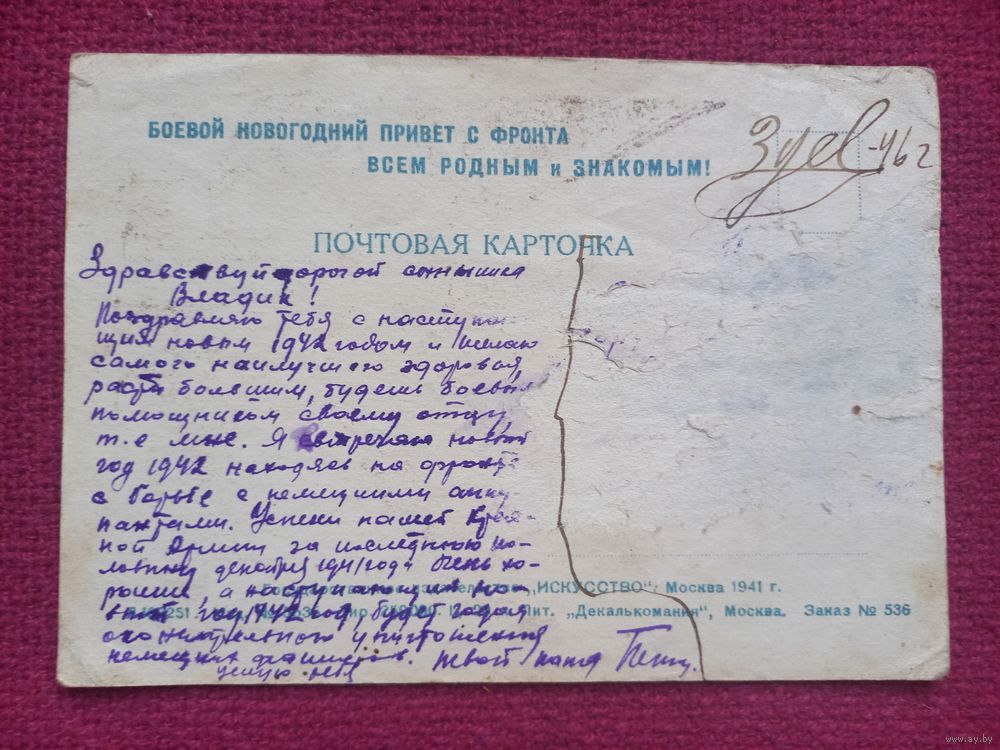 БОЕВОЙ НОВОГОДНИЙ ПРИВЕТ С ФРОНТА
ВСЕМ РОДНЫМ и ЗНАКОМЫМ!
-46 г
ПОЧТОВАЯ КАРТОЧКА
Здравствуй дорогой сынишка
Владик!
Поздравляю тебя с наступаю-
щим новым 1942 годом и желаю
самого наилучшего здоровья,
расти большим, будешь боевым
помощником своему отцу,
т.е мне. Я встречаю новый
год 1942 находясь на фронте
в борьбе с немецкими окку-
пантами. Успехи нашей Крас-
ной Армии за последнюю по-
ловину декабря 1941 года очень хо-
рошие, а наступающий но-
вый год 1942 год будет годом
окончательного уничтожения
немецких фашистов. Твой папа
целую тебя
Государственное издательство „ИСКУССТВО“ Москва 1941 г.
Лит. „Декалькомания“, Москва. Заказ № 536
www.ay.by